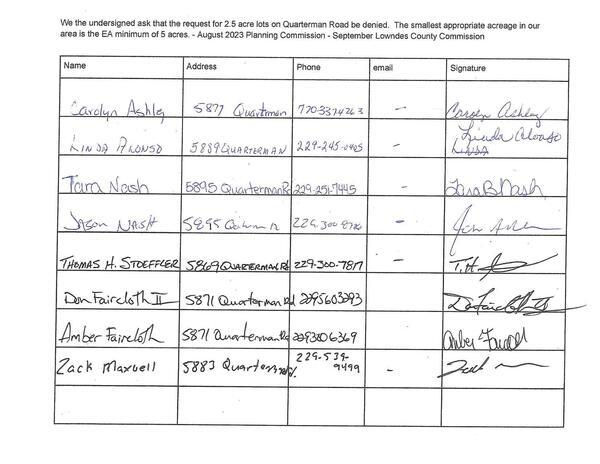 We the undersigned ask that the request for 2.5 acre lots on Quarterman Road be denied. The smallest appropriate acreage in our
area is the EA minimum of 5 acres. - August 2023 Planning Commission - September Lowndes County Commission
Name Address Phone email Signature
Carolyn Ashley 5877 Quarterman 7703374263 - Carolyn Ashley
LINDA ALONSO 5889 QUARTERMAN 229-245-0405 - Linda Alonso
Tara Nash 5895 Quarterman Rd 229-251-7445 - Tara B Nash
JASON NASH 5895 229-300-8786 -
THOMAS H. STOEFFLER 5869 QUARTERMAN Rd 229-300-7817 - T.H.
Don Faircloth II 5871 Quarterman Rd 2295603293 Don Faircloth II
Amber Faircloth 5871 Quarterman Rd 2293006369 Amber Faircloth
Zack Maxwell 5883 Quarterman Rd. 229-539-
9499 - Zack